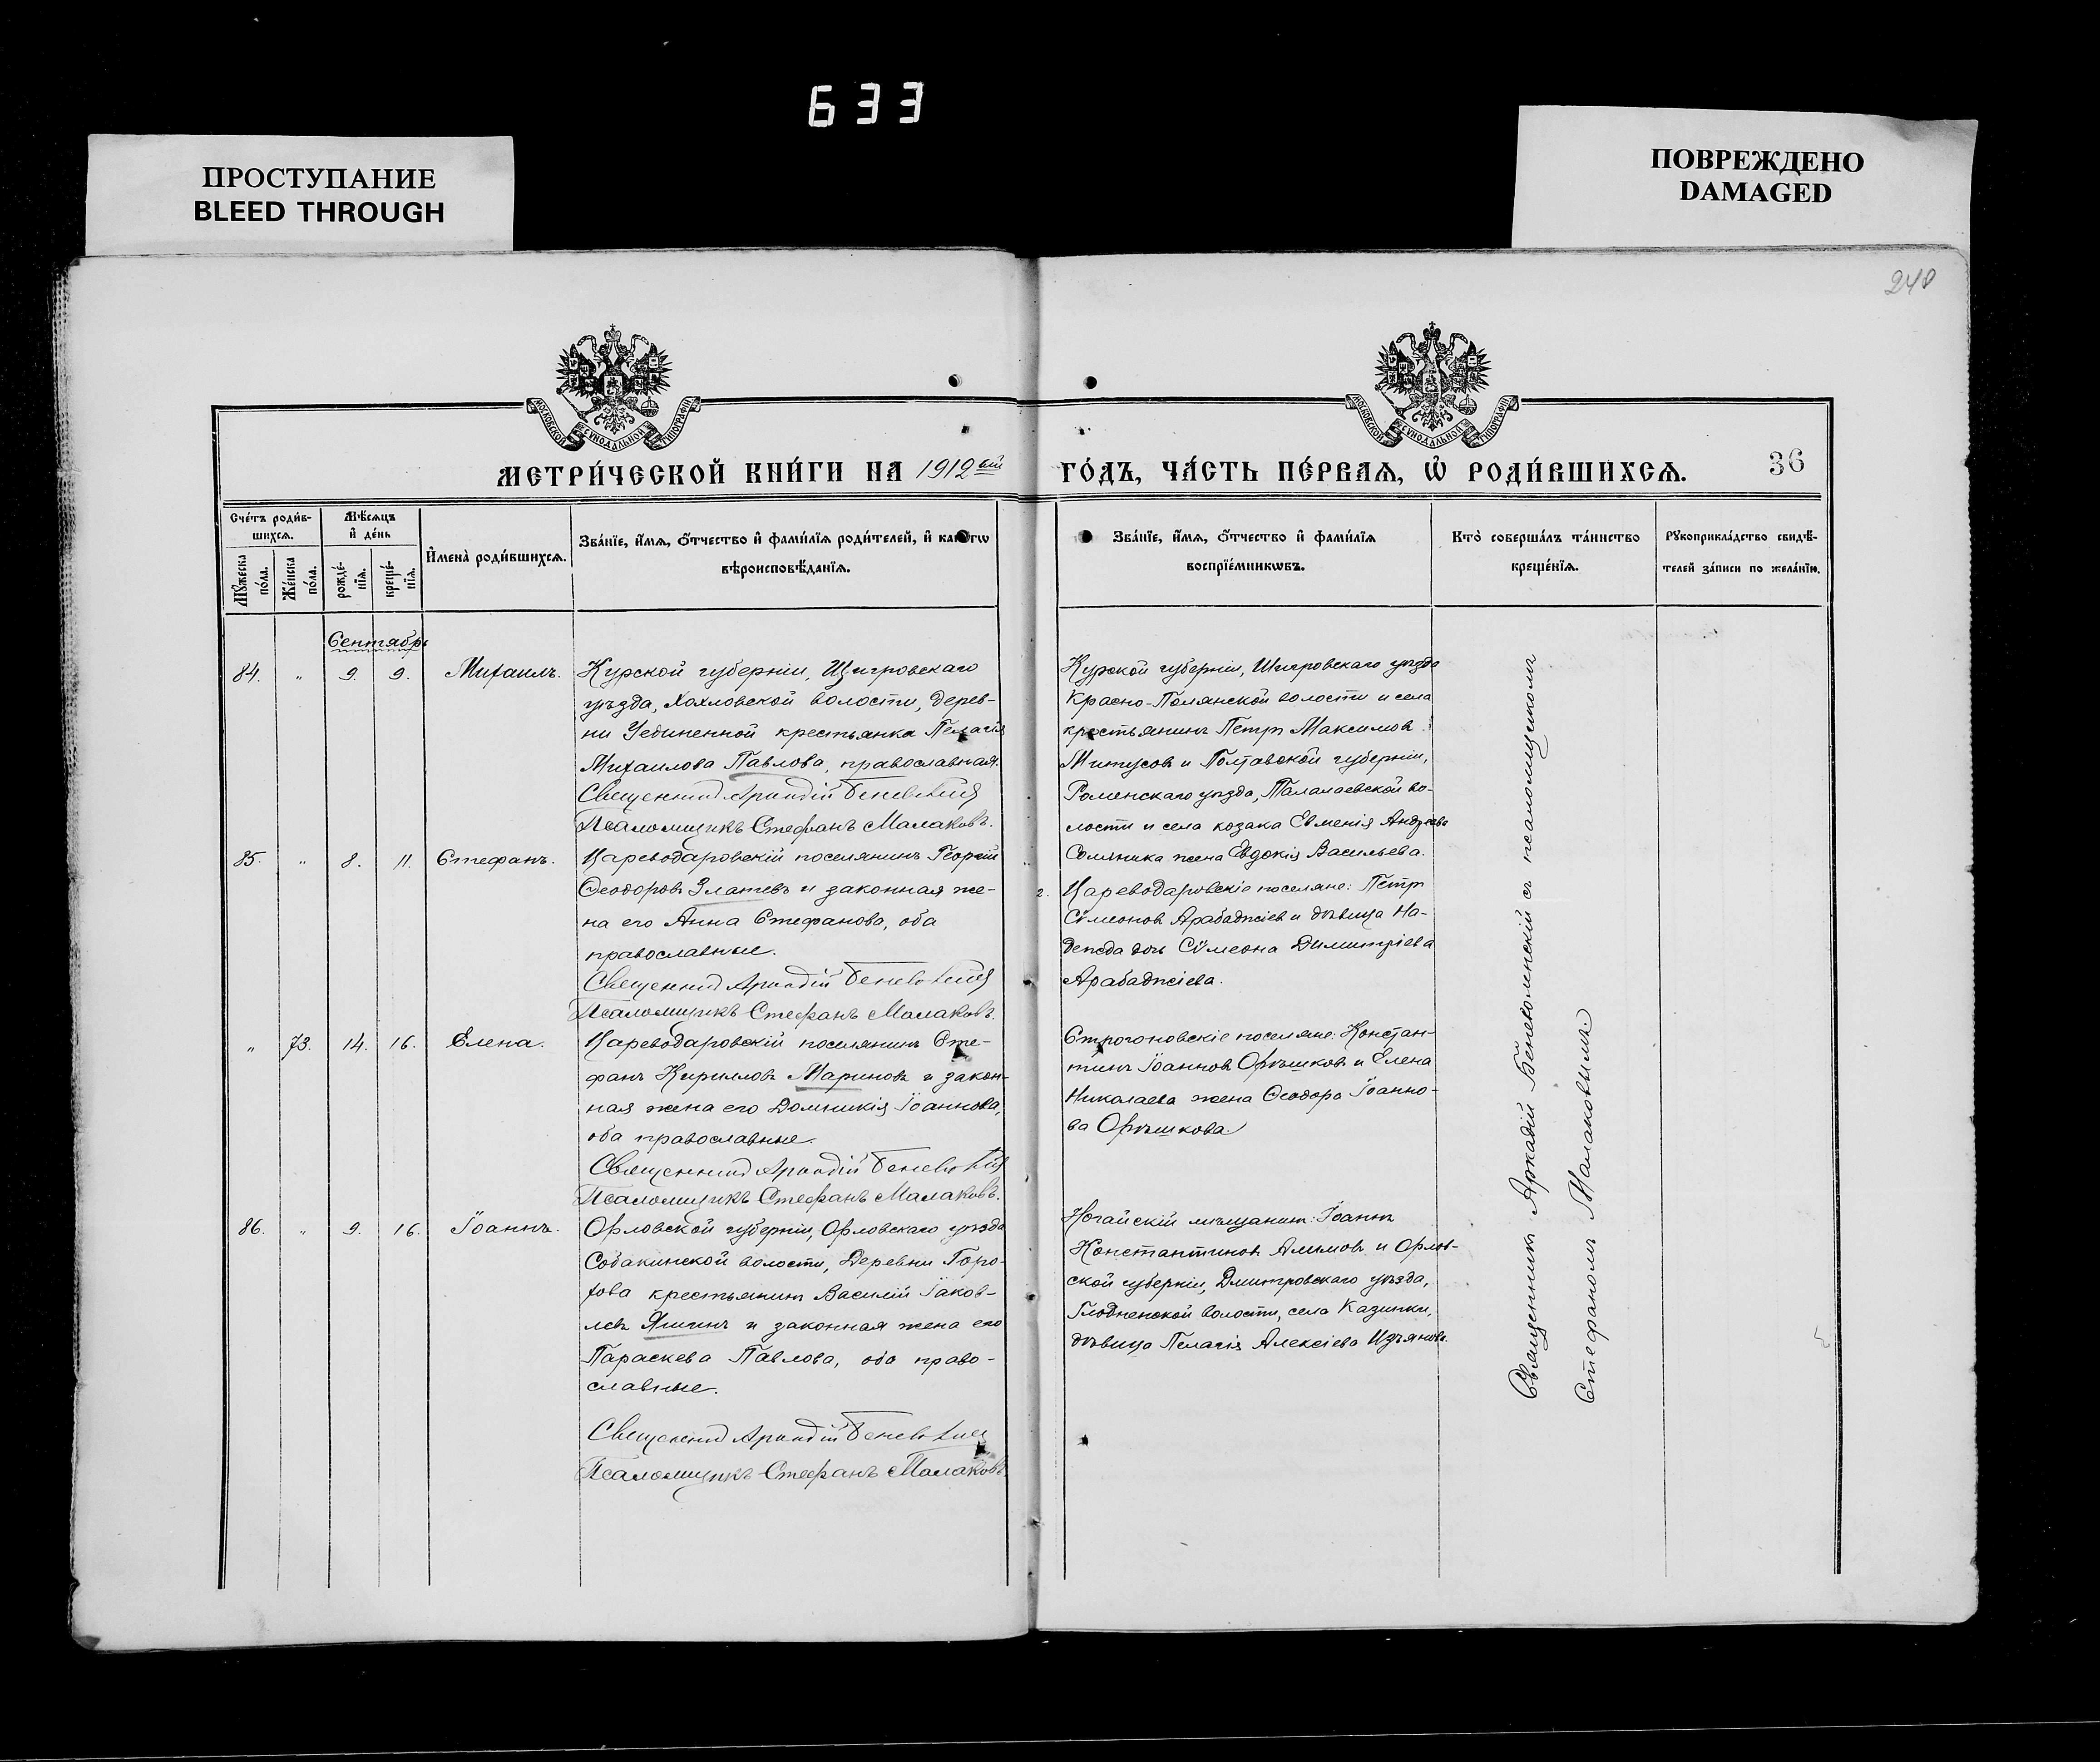 633
ПРОСТУПАНИЕ
BLEED THROUGH
ПОВРЕЖДЕНО
DAMAGED
240
МОСКОВСКОЙ СУНОДАЛЬНОЙ ТИПОГРАФІИ
МОСКОВСКОЙ СУНОДАЛЬНОЙ ТИПОГРАФІИ
МЕТРИ́ЧЕСКОЙ КНИ́ГИ НА 1912 ый
ГО́ДЪ, ЧА́СТЬ ПЕ́РВАѦ, Ѡ҆ РОДИ́ВШИХСѦ. 36
Сче́тъ роди́в-
шихсѧ.
Мꙋ́жеска по́ла.
Же́нска по́ла.
Мѣ́сѧцъ и҆ де́нь
рожде́-нїѧ.
креще́-нїѧ.
И҆мена̀ роди́вшихсѧ.
Зва́нїе, и҆́мѧ, ѻ҆́тчество и҆ фами́лїѧ роди́телей, и҆ како́гѡ
вѣроисповѣ́данїѧ.
Зва́нїе, и҆́мѧ, ѻ҆́тчество и҆ фами́лїѧ
воспрїе́мникѡвъ.
Кто̀ соверша́лъ та́инство
креще́нїѧ.
Рꙋкоприкла́дство свидѣ́-
телей за́писи по жела́нїю.
Сентябрь
84. „ 9. 9. Михаилъ.
Курской губерніи, Щигровскаго
уѣзда, Хохловской волости, дерев-
ни Уединенной крестьянка Пелагія
Михаилова Павлова, православная.
Священникъ Аркадій
Псаломщикъ Стефанъ Малаковъ.
Курской губерніи, Щигровскаго уѣзда
Красно-Полянской волости и села
крестьянинъ Петръ Максимовъ
Митусовъ и Полтавской губерніи,
Роменскаго уѣзда, Талалаевской во-
лости и села козака Евменія Андреева
жена Евдокія Васильева.
85. „ 8. 11. Стефанъ.
Цареводаровскій поселянинъ Георгій
Ѳеодоровъ Златевъ и законная же-
на его Анна Стефанова, оба
православные.
Священникъ Аркадій
Псаломщикъ Стефанъ Малаковъ.
2. Цареводаровскіе поселяне: Петръ
Сѵмеоновъ Арабаджіевъ и дѣвица На-
дежда дочь Сѵмеона Димитріева
Арабаджіева.
„ 73. 14. 16. Елена.
Цареводаровскій поселянинъ Сте-
фанъ Кирилловъ Мариновъ и закон-
ная жена его Домникія Іоаннова,
оба православные.
Священникъ Аркадій
Псаломщикъ Стефанъ Малаковъ.
Строгоновскіе поселяне: Констан-
тинъ Іоанновъ Орѣшковъ и Елена
Николаева жена Ѳеодора Іоанно-
ва Орѣшкова.
86. „ 9. 16. Іоаннъ.
Орловской губерніи, Орловскаго уѣзда
Собакинской волости, Деревни Горо-
хова крестьянинъ Василій Іаков-
левъ Яшинъ и законная жена его
Параскева Павлова, оба право-
славные.
Священникъ Аркадій
Псаломщикъ Стефанъ Малаковъ.
Ногайскій мѣщанинъ: Іоаннъ
Константиновъ Алимовъ и Орлов-
ской губерніи, Дмитровскаго уѣзда,
Глодненской волости, села Казинки,
дѣвица Пелагія Алексіева
Священникъ Аркадій Беневоленскій съ псаломщикомъ
Стефаномъ Малаковымъ.